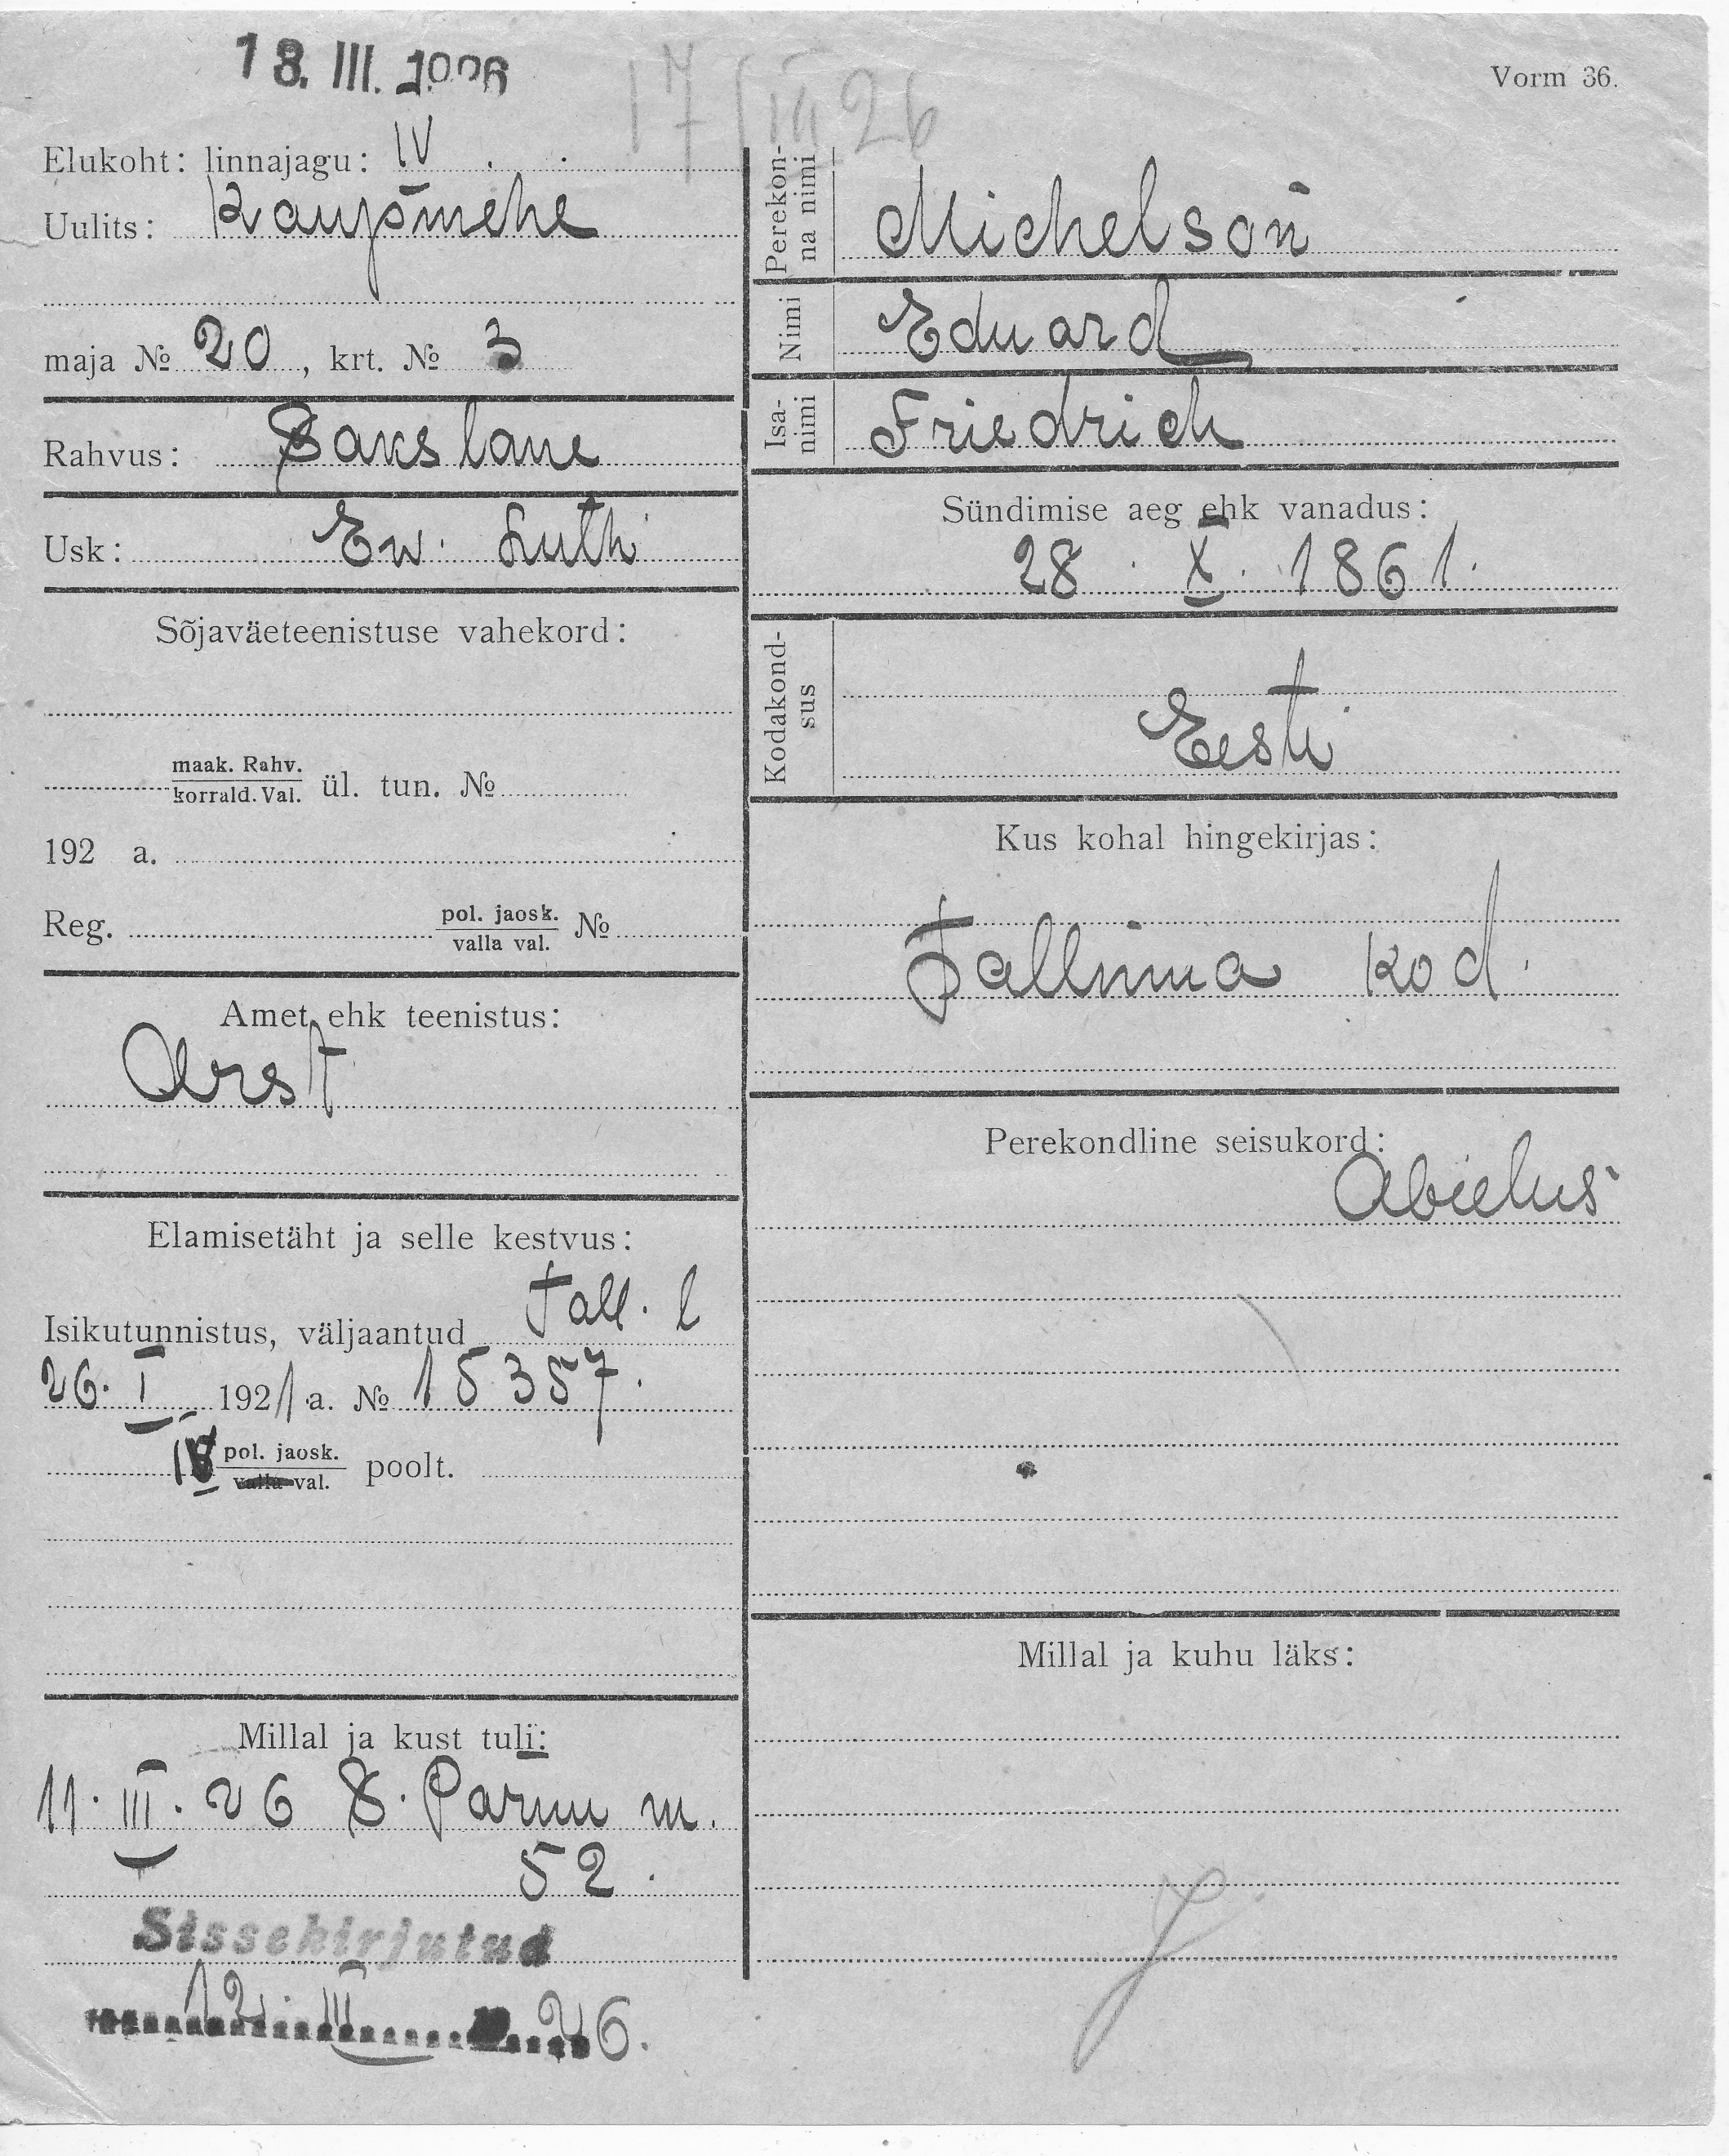 18. III. 1926
17/III 26
Vorm 36.
Elukoht: linnajagu: IV
Uulits: Kaupmehe
maja № 20, krt. № 3
Rahvus: Sakslane
Usk: Ew. Luth
Sõjaväeteenistuse vahekord:
maak. Rahv.
korrald. Val. ül. tun. №
192 a.
Reg. pol. jaosk. №
valla val.
Amet ehk teenistus:
Arst
Elamisetäht ja selle kestvus:
Isikutunnistus, väljaantud Tall. l
26. I 1921 a. № 15357.
IV pol. jaosk. poolt.
valla val.
Millal ja kust tuli:
11. III. 26 S. Parnu m.
52.
Sissekirjutud
12. III 26.
Perekon-
na nimi
Michelson
Nimi
Eduard
Isa-
nimi
Friedrich
Sündimise aeg ehk vanadus:
28. X. 1861.
Kodakond-
sus
Eesti
Kus kohal hingekirjas:
Tallinna kod.
Perekondline seisukord:
Abielus
Millal ja kuhu läks: